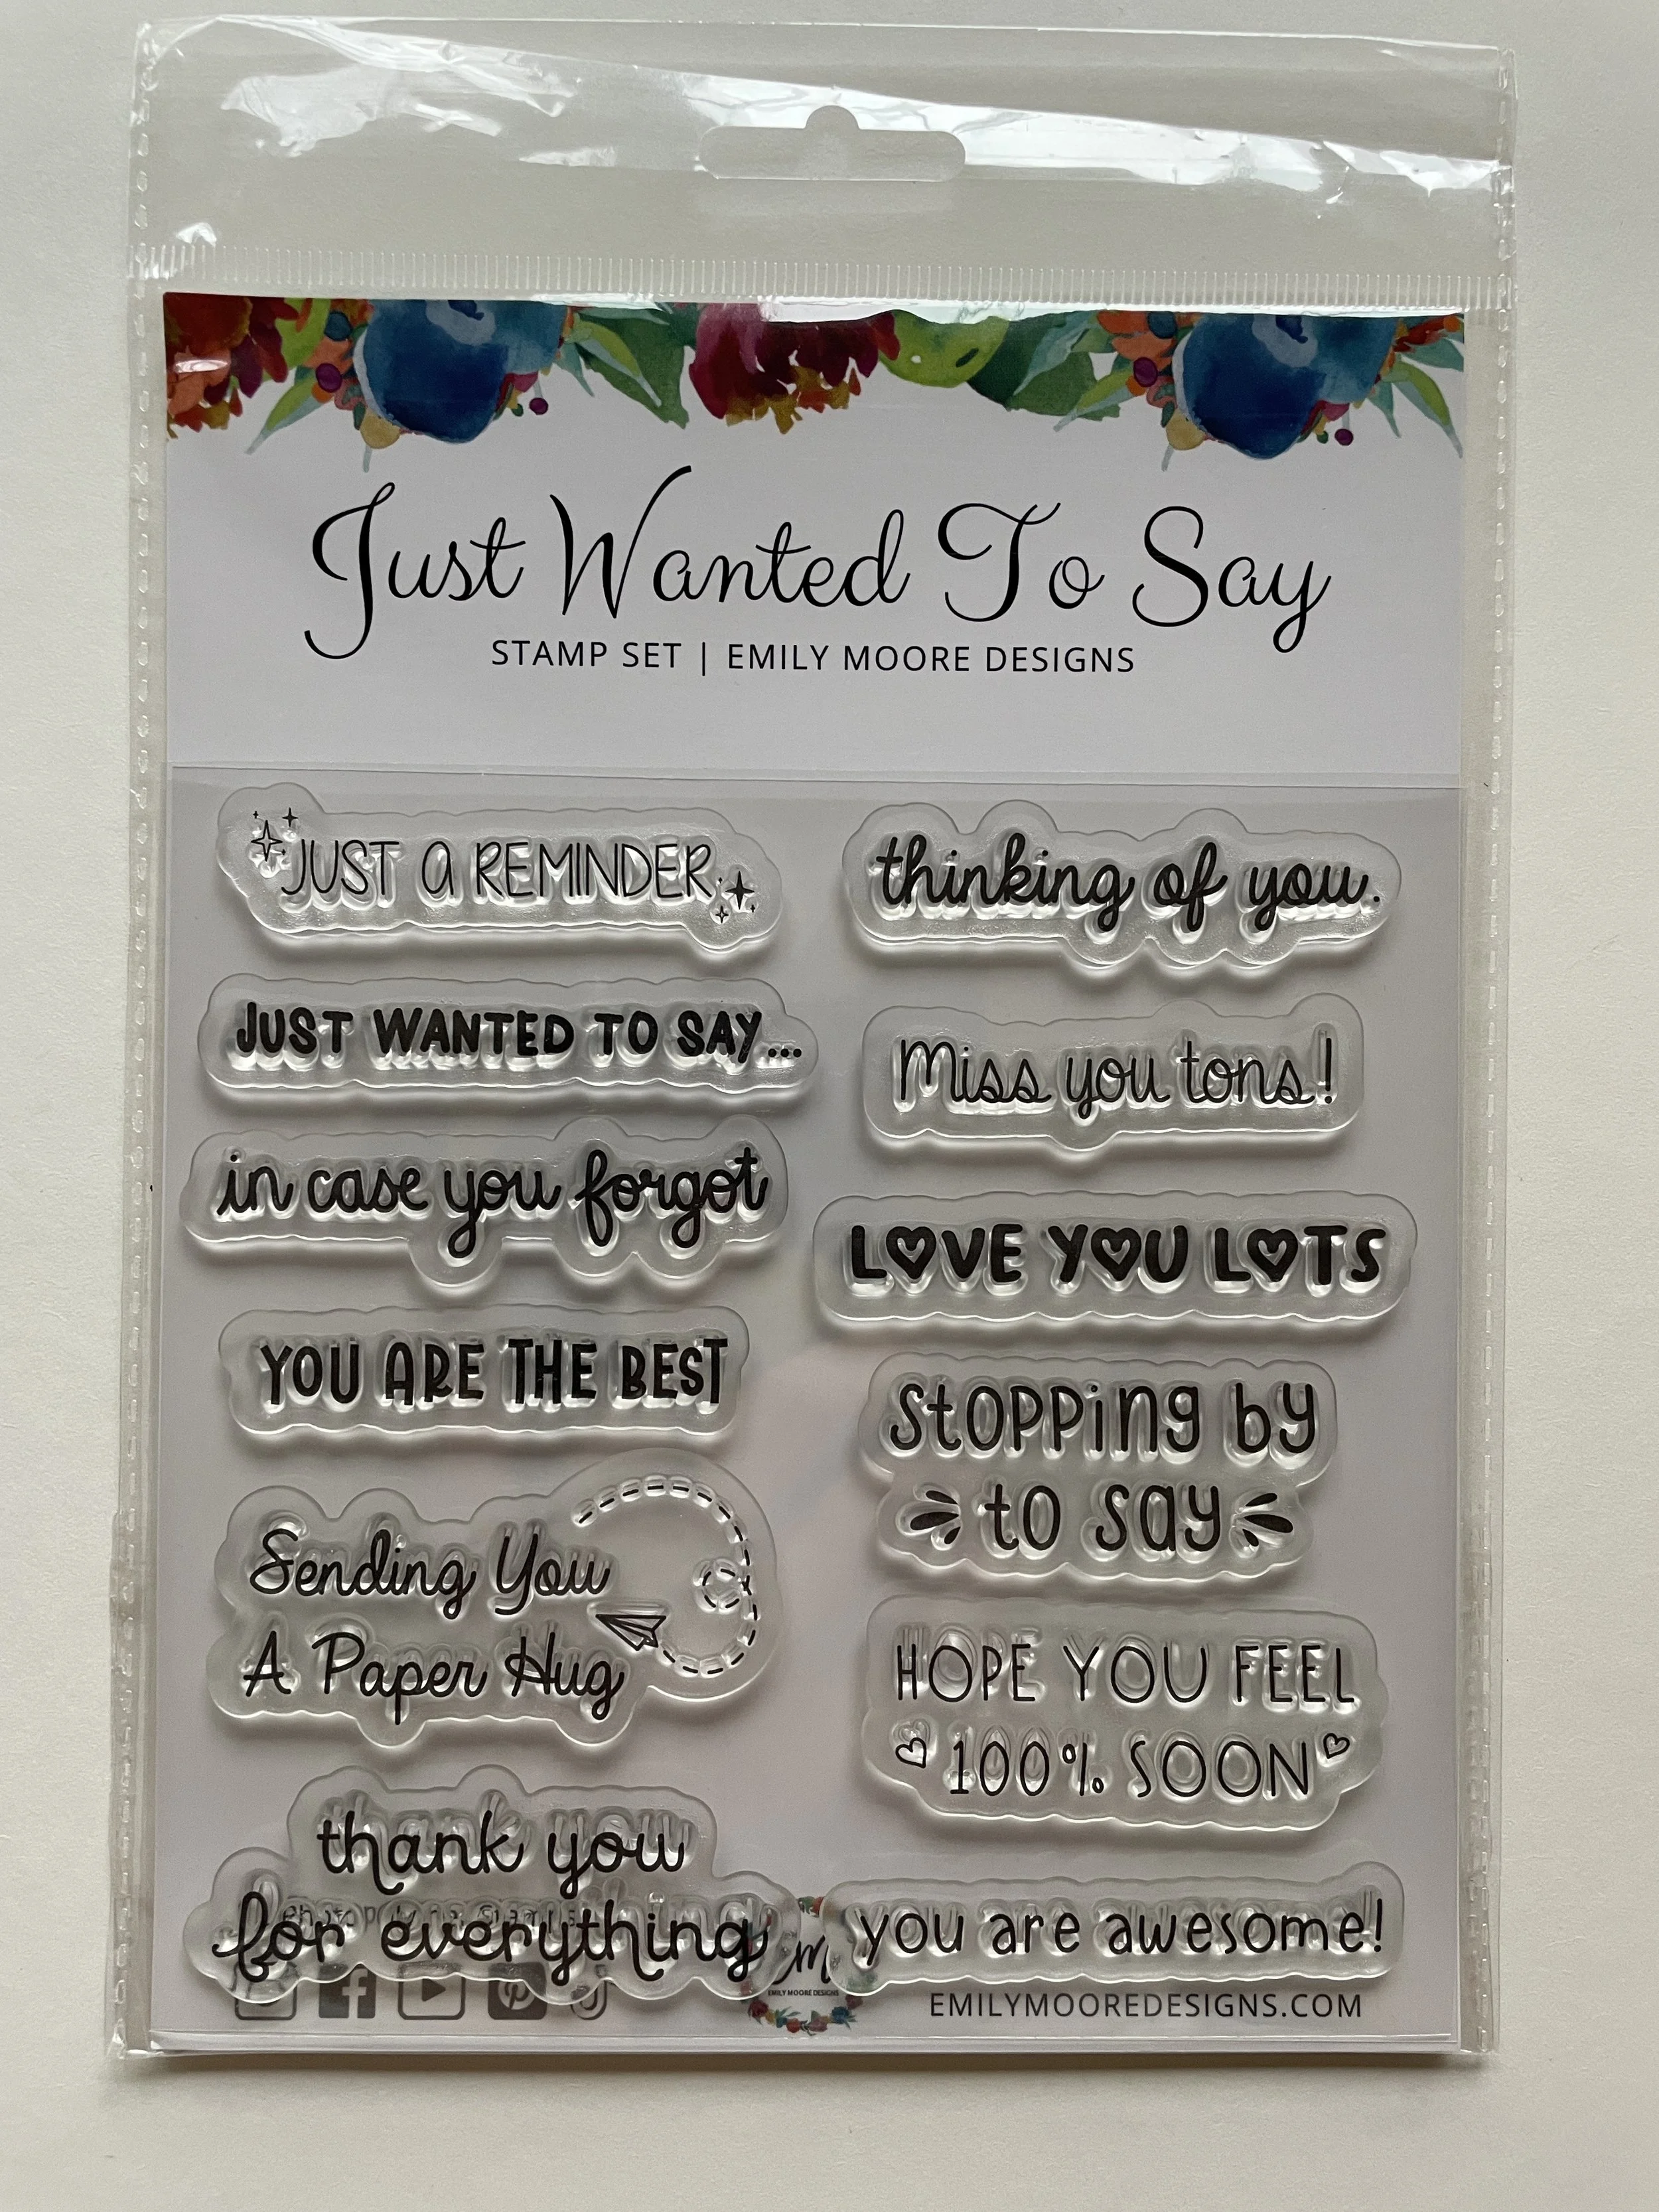 Just Wanted To Say
STAMP SET | EMILY MOORE DESIGNS
JUST A REMINDER
JUST WANTED TO SAY...
in case you forgot
YOU ARE THE BEST
Sending You
A Paper Hug
thank you
for everything
thinking of you.
Miss you tons!
LOVE YOU LOTS
Stopping by
to say
HOPE YOU FEEL
100% SOON
you are awesome!
EMILY MOORE DESIGNS
EMILYMOOREDESIGNS.COM